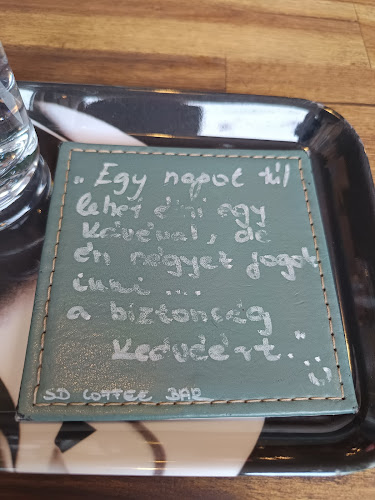 „Egy napot túl
lehet élni egy
kávéval, de
én négyet fogok
inni ....
a biztonság
kedvéért."
SD COFFEE BAR